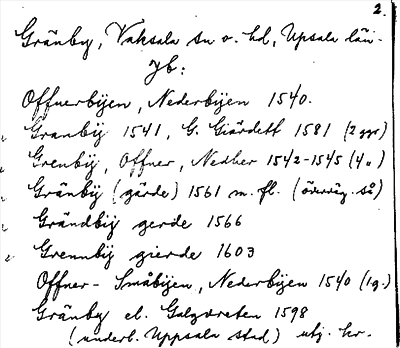 2.
Gränby, Vaksala sn o. hd, Uppsala län.
Jb:
Offnerbijen, Nederbijen 1540.
Granbij 1541, G. Giärdett 1581 (2 ggr)
Grenbij, Offner, Nedher 1542-1545 (4 u)
Gränby (gärde) 1561 m. fl. (överväg. så)
Grändbij gerde 1566
Grennbij gierde 1603
Offner- Småbijen, Nederbijen 1540 (1 g.)
Gränby el. Galgvreten 1598
(underl. Uppsala stad) utj. kr.